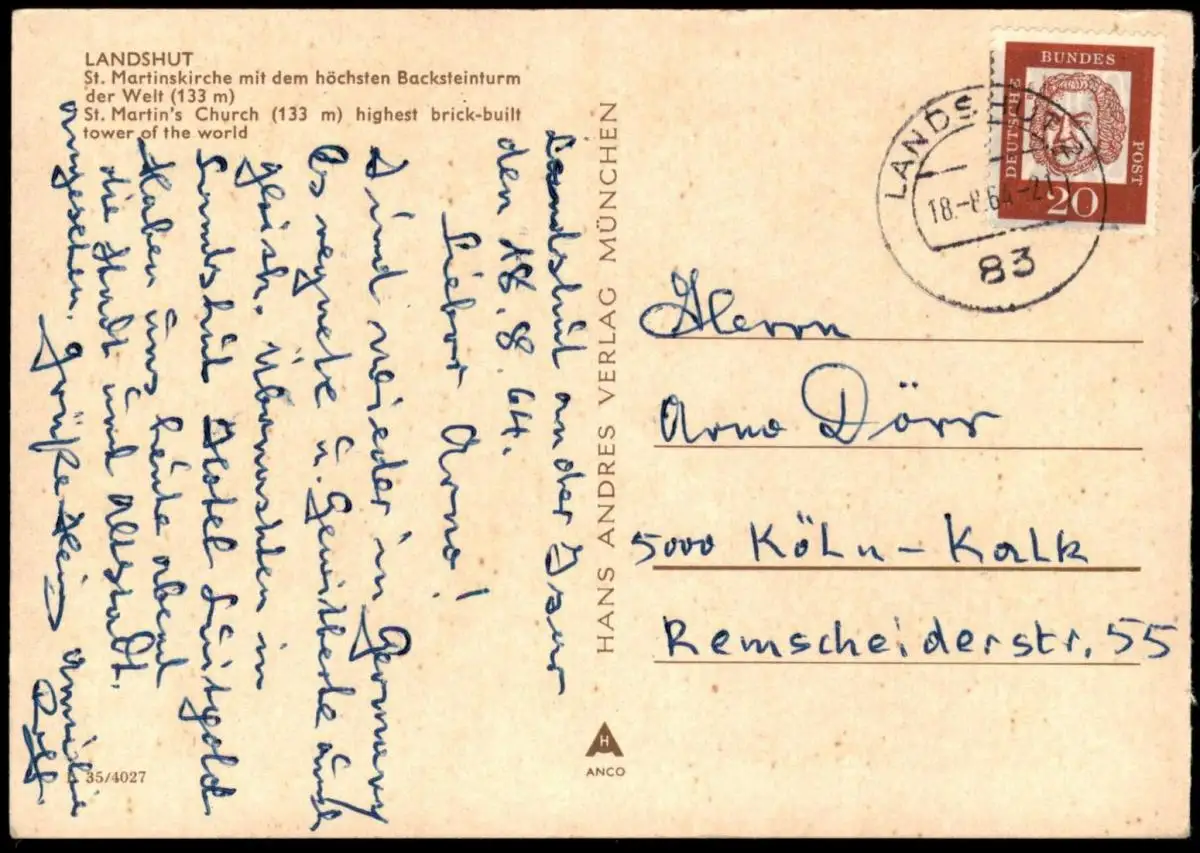 LANDSHUT
St. Martinskirche mit dem höchsten Backsteinturm
der Welt (133 m)
St. Martin's Church (133 m) highest brick-built
tower of the world
Landshut an der Isar
den 18.8.64.
Lieber Arno!
Sind wieder in Germany
Es regnete u. gewitterte auch
gleich. Übernachten in
Landshut Hotel Luitpold
Haben uns heute abend
die Stadt und Altstadt
angesehen. Grüße
Rolf.
L 35/4027
HANS ANDRES VERLAG MÜNCHEN
H
ANCO
DEUTSCHE BUNDES POST
20
LANDSHUT
18.-8.64
83
Herrn
Arno Dörr
5000 Köln-Kalk
Remscheiderstr. 55